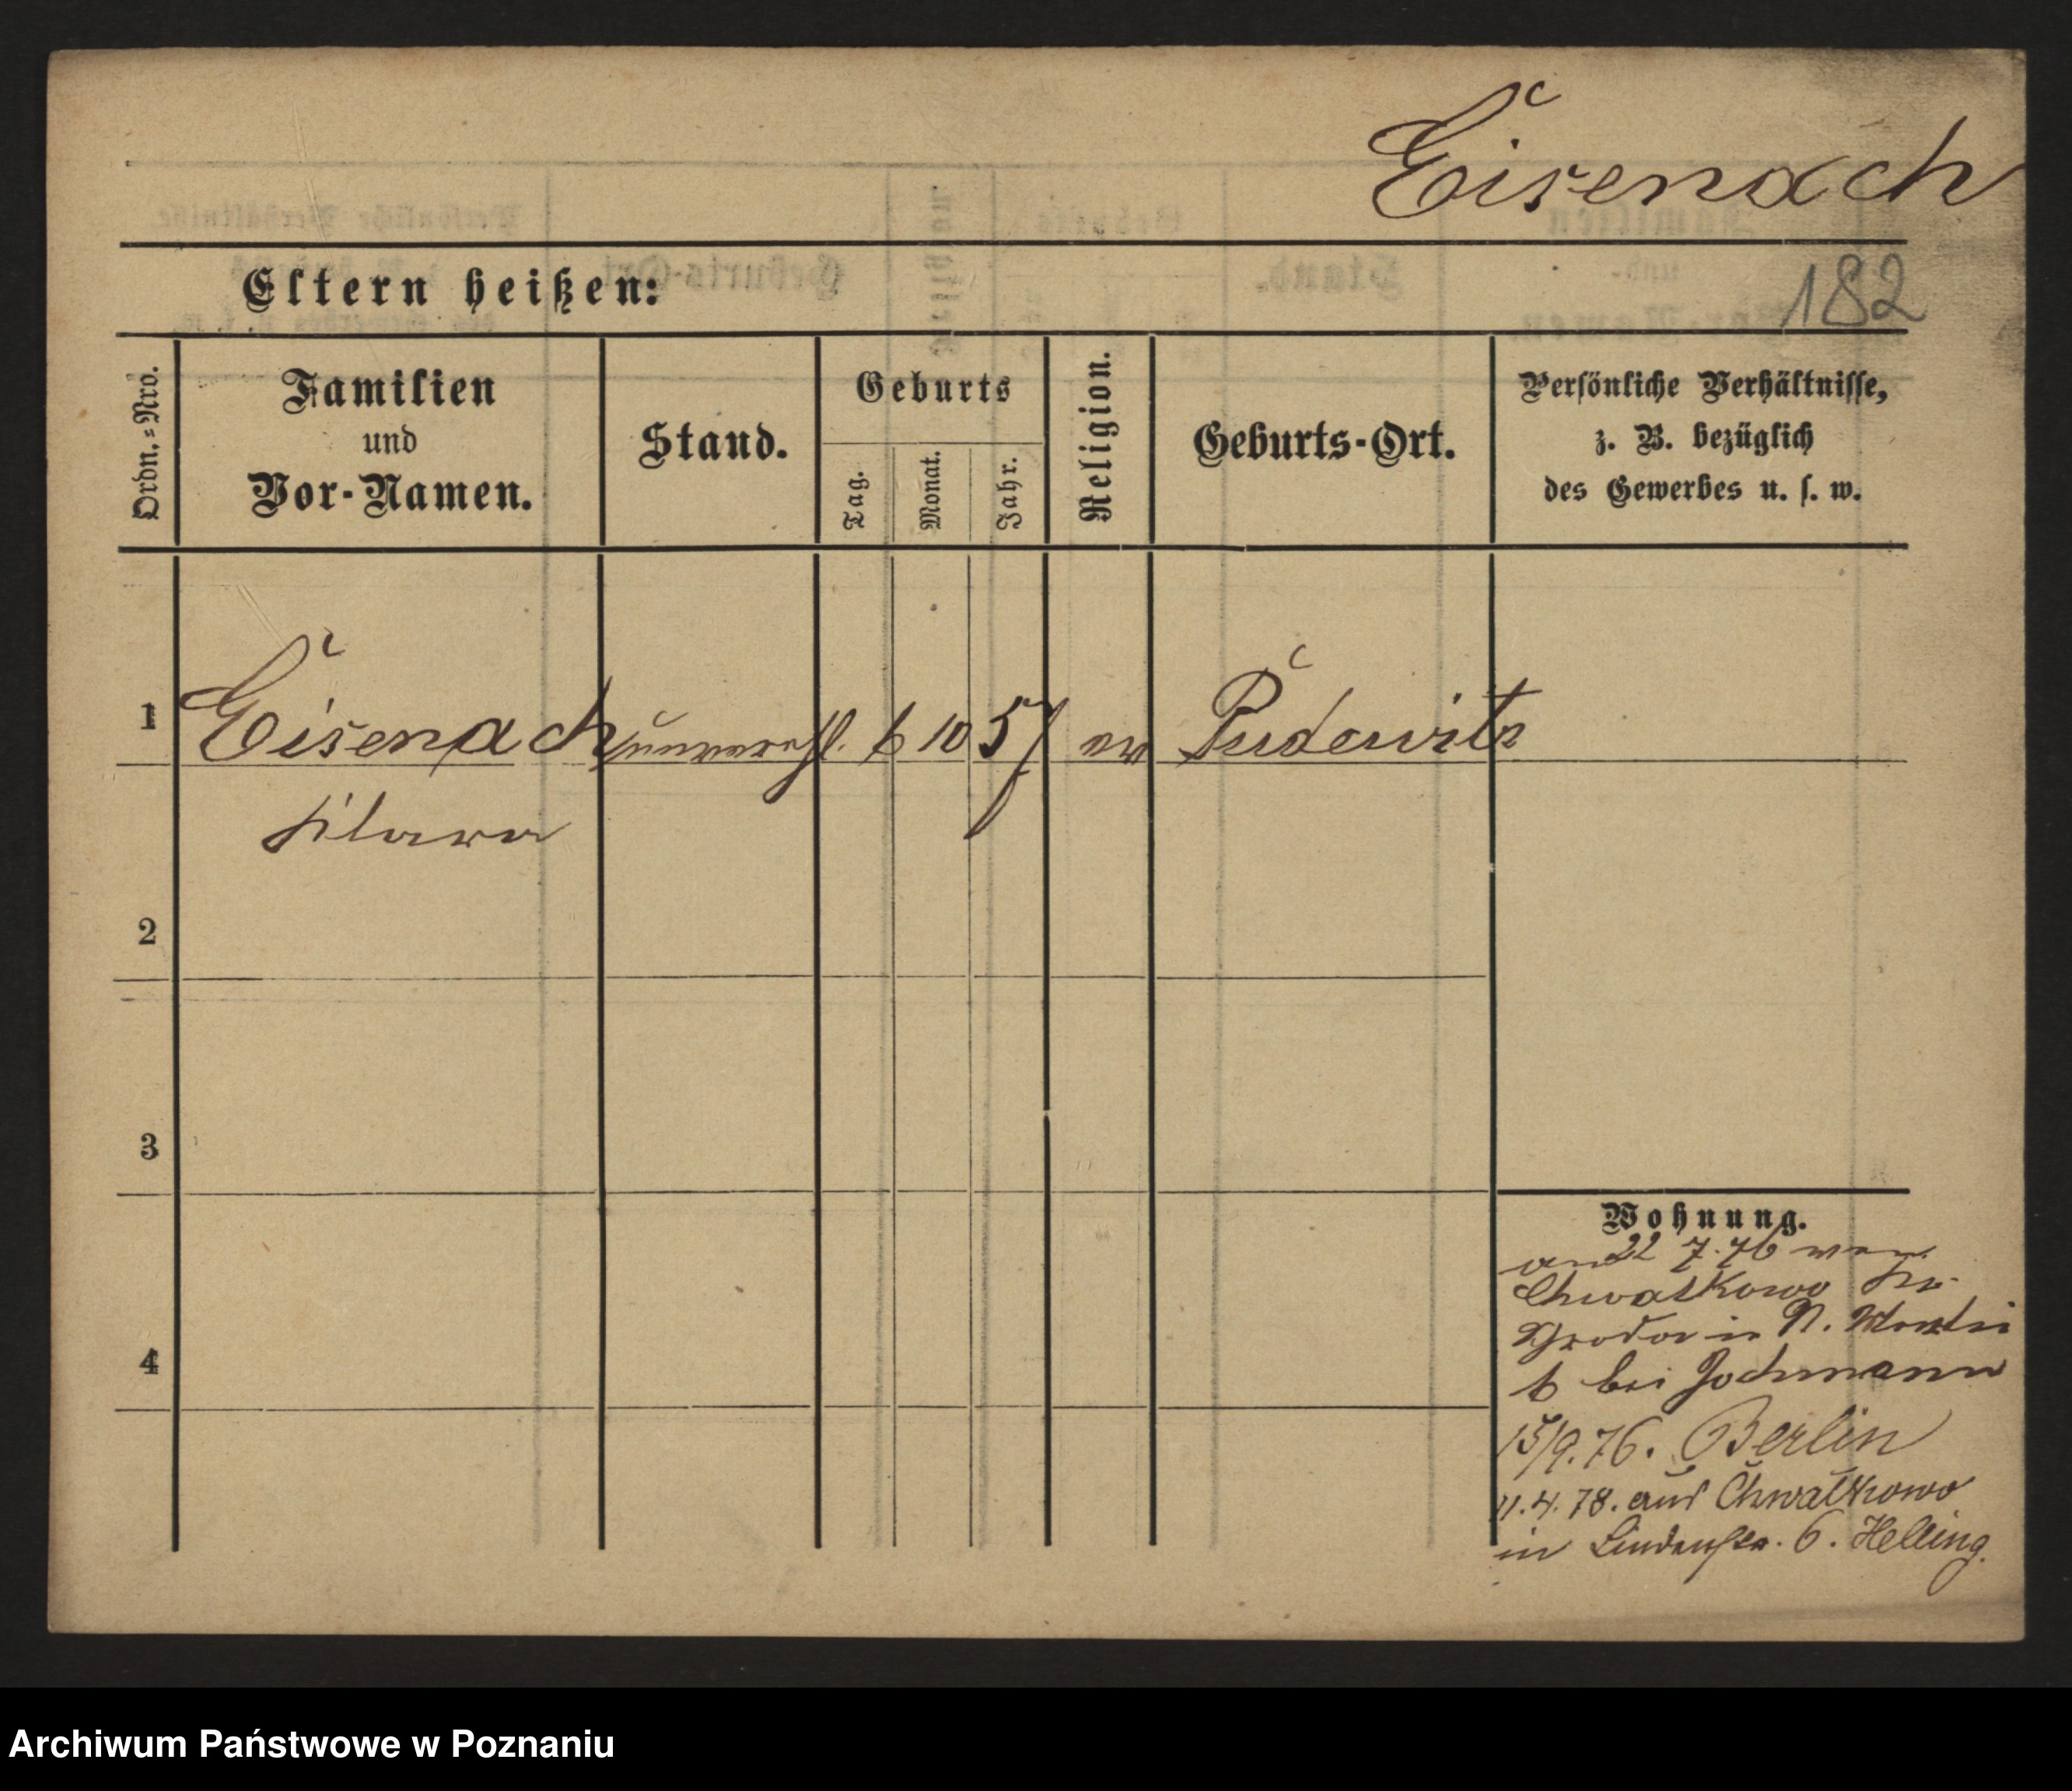 Eisenach
Eltern heißen:
182
Ordn.=Nro.
Familien
und
Vor-Namen.
Stand.
Geburts
Tag.
Monat.
Jahr.
Religion.
Geburts-Ort.
Persönliche Verhältnisse,
z. B. bezüglich
des Gewerbes u. s. w.
1
Eisenach unverehl. 6 10 57 ev Pudewitz
2
3
4
Wohnung.
22 7. 76
Chwalkowo Kr.
Schroda in N. Markt
6 bei Jochmann
15/9. 76. Berlin
11. 4. 78. aus Chwalkowo
in Lindenstr. 6. Helling.
Archiwum Państwowe w Poznaniu